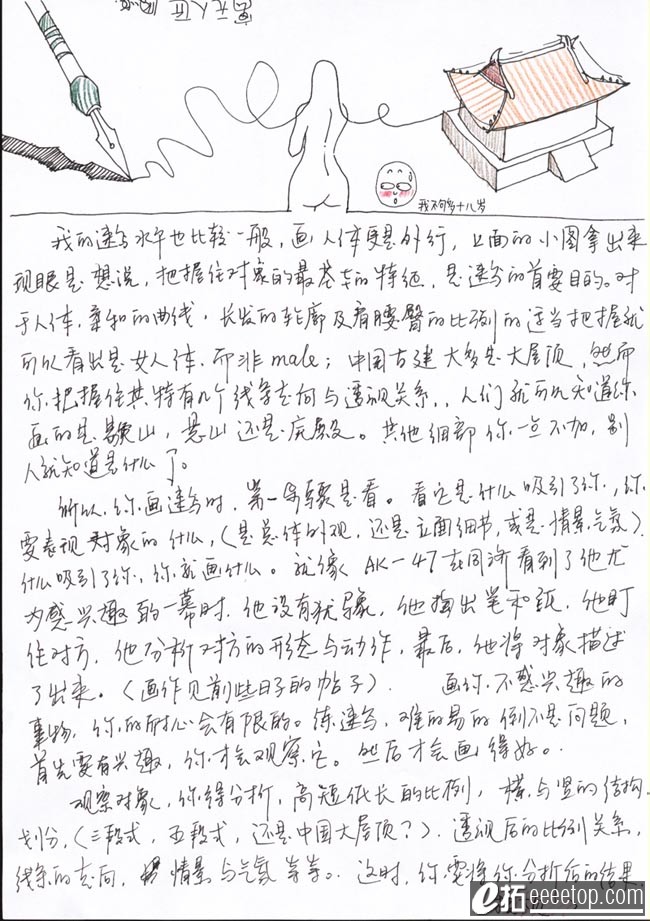 我不句多十八岁
我的速写水平也比较一般，画人体更是外行，上面的小图拿出来
现眼是想说，把握住对象的最基本的特征，是速写的首要目的。对
于人体，柔和的曲线，长发的轮廓及肩腰臀的比例的适当把握就
可以看出是女人体，而非male；中国古建大多是大屋顶，然而
你把握住其特有几个线条走向与透视关系，人们就可以知道你
画的是歇山，悬山还是庑殿。其他细部你一点不加，别
人就知道是什么了。
所以，你画速写时，第一步骤是看。看它是什么吸引了你，你
要表现对象的什么，（是总体外观，还是立面细节，或是情景气氛）
什么吸引了你，你就画什么。就像AK-47在同济看到了他尤
为感兴趣的一幕时，他没有犹豫，他掏出笔和纸，他盯
住对方，他分析对方的形态与动作，最后，他将对象描述
了出来。（画作见前些日子的帖子）. 画你不感兴趣的
事物，你的耐心会有限的。练速写，难的易的倒不是问题，
首先要有兴趣，你才会观察它。然后才会画得好。
观察对象，你得分析，高短低长的比例，横与竖的结构
划分，（三段式，五段式，还是中国大屋顶？）. 透视后的比例关系，
线条的走向，情景与气氛等等。这时，你要将你分析后的结果
e拓 eeeetop.com